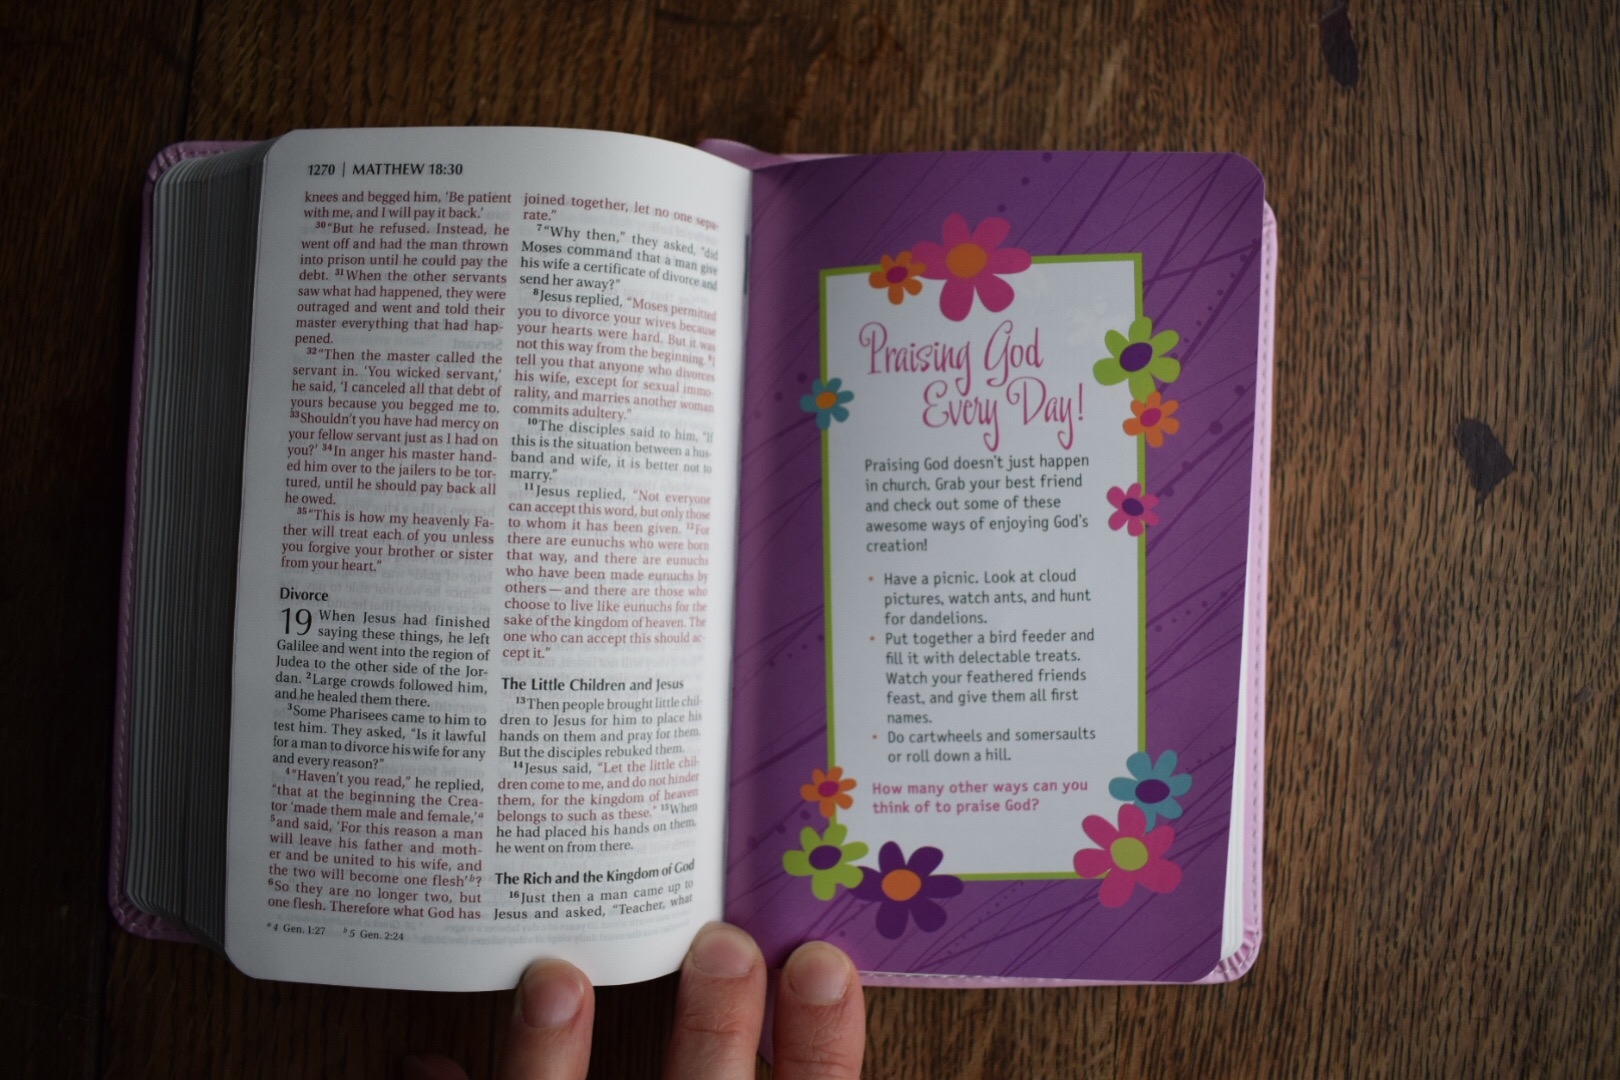 1270 | MATTHEW 18:30
knees and begged him, 'Be patient
with me, and I will pay it back.'
30"But he refused. Instead, he
went off and had the man thrown
into prison until he could pay the
debt. 31When the other servants
saw what had happened, they were
outraged and went and told their
master everything that had hap-
pened.
32"Then the master called the
servant in. 'You wicked servant,'
he said, 'I canceled all that debt of
yours because you begged me to.
33Shouldn't you have had mercy on
your fellow servant just as I had on
you?' 34In anger his master hand-
ed him over to the jailers to be tor-
tured, until he should pay back all
he owed.
35"This is how my heavenly Fa-
ther will treat each of you unless
you forgive your brother or sister
from your heart."
Divorce
19 When Jesus had finished
saying these things, he left
Galilee and went into the region of
Judea to the other side of the Jor-
dan. 2Large crowds followed him,
and he healed them there.
3Some Pharisees came to him to
test him. They asked, "Is it lawful
for a man to divorce his wife for any
and every reason?"
4"Haven't you read," he replied,
"that at the beginning the Crea-
tor 'made them male and female,'a
5and said, 'For this reason a man
will leave his father and moth-
er and be united to his wife, and
the two will become one flesh'b?
6So they are no longer two, but
one flesh. Therefore what God has
a 4 Gen. 1:27 b 5 Gen. 2:24
joined together, let no one sepa-
rate."
7"Why then," they asked, "did
Moses command that a man give
his wife a certificate of divorce and
send her away?"
8Jesus replied, "Moses permitted
you to divorce your wives because
your hearts were hard. But it was
not this way from the beginning. 9I
tell you that anyone who divorces
his wife, except for sexual immo-
rality, and marries another woman
commits adultery."
10The disciples said to him, "If
this is the situation between a hus-
band and wife, it is better not to
marry."
11Jesus replied, "Not everyone
can accept this word, but only those
to whom it has been given. 12For
there are eunuchs who were born
that way, and there are eunuchs
who have been made eunuchs by
others — and there are those who
choose to live like eunuchs for the
sake of the kingdom of heaven. The
one who can accept this should ac-
cept it."
The Little Children and Jesus
13Then people brought little chil-
dren to Jesus for him to place his
hands on them and pray for them.
But the disciples rebuked them.
14Jesus said, "Let the little chil-
dren come to me, and do not hinder
them, for the kingdom of heaven
belongs to such as these." 15When
he had placed his hands on them,
he went on from there.
The Rich and the Kingdom of God
16Just then a man came up to
Jesus and asked, "Teacher, what
Praising God
Every Day!
Praising God doesn't just happen
in church. Grab your best friend
and check out some of these
awesome ways of enjoying God's
creation!
• Have a picnic. Look at cloud
pictures, watch ants, and hunt
for dandelions.
• Put together a bird feeder and
fill it with delectable treats.
Watch your feathered friends
feast, and give them all first
names.
• Do cartwheels and somersaults
or roll down a hill.
How many other ways can you
think of to praise God?